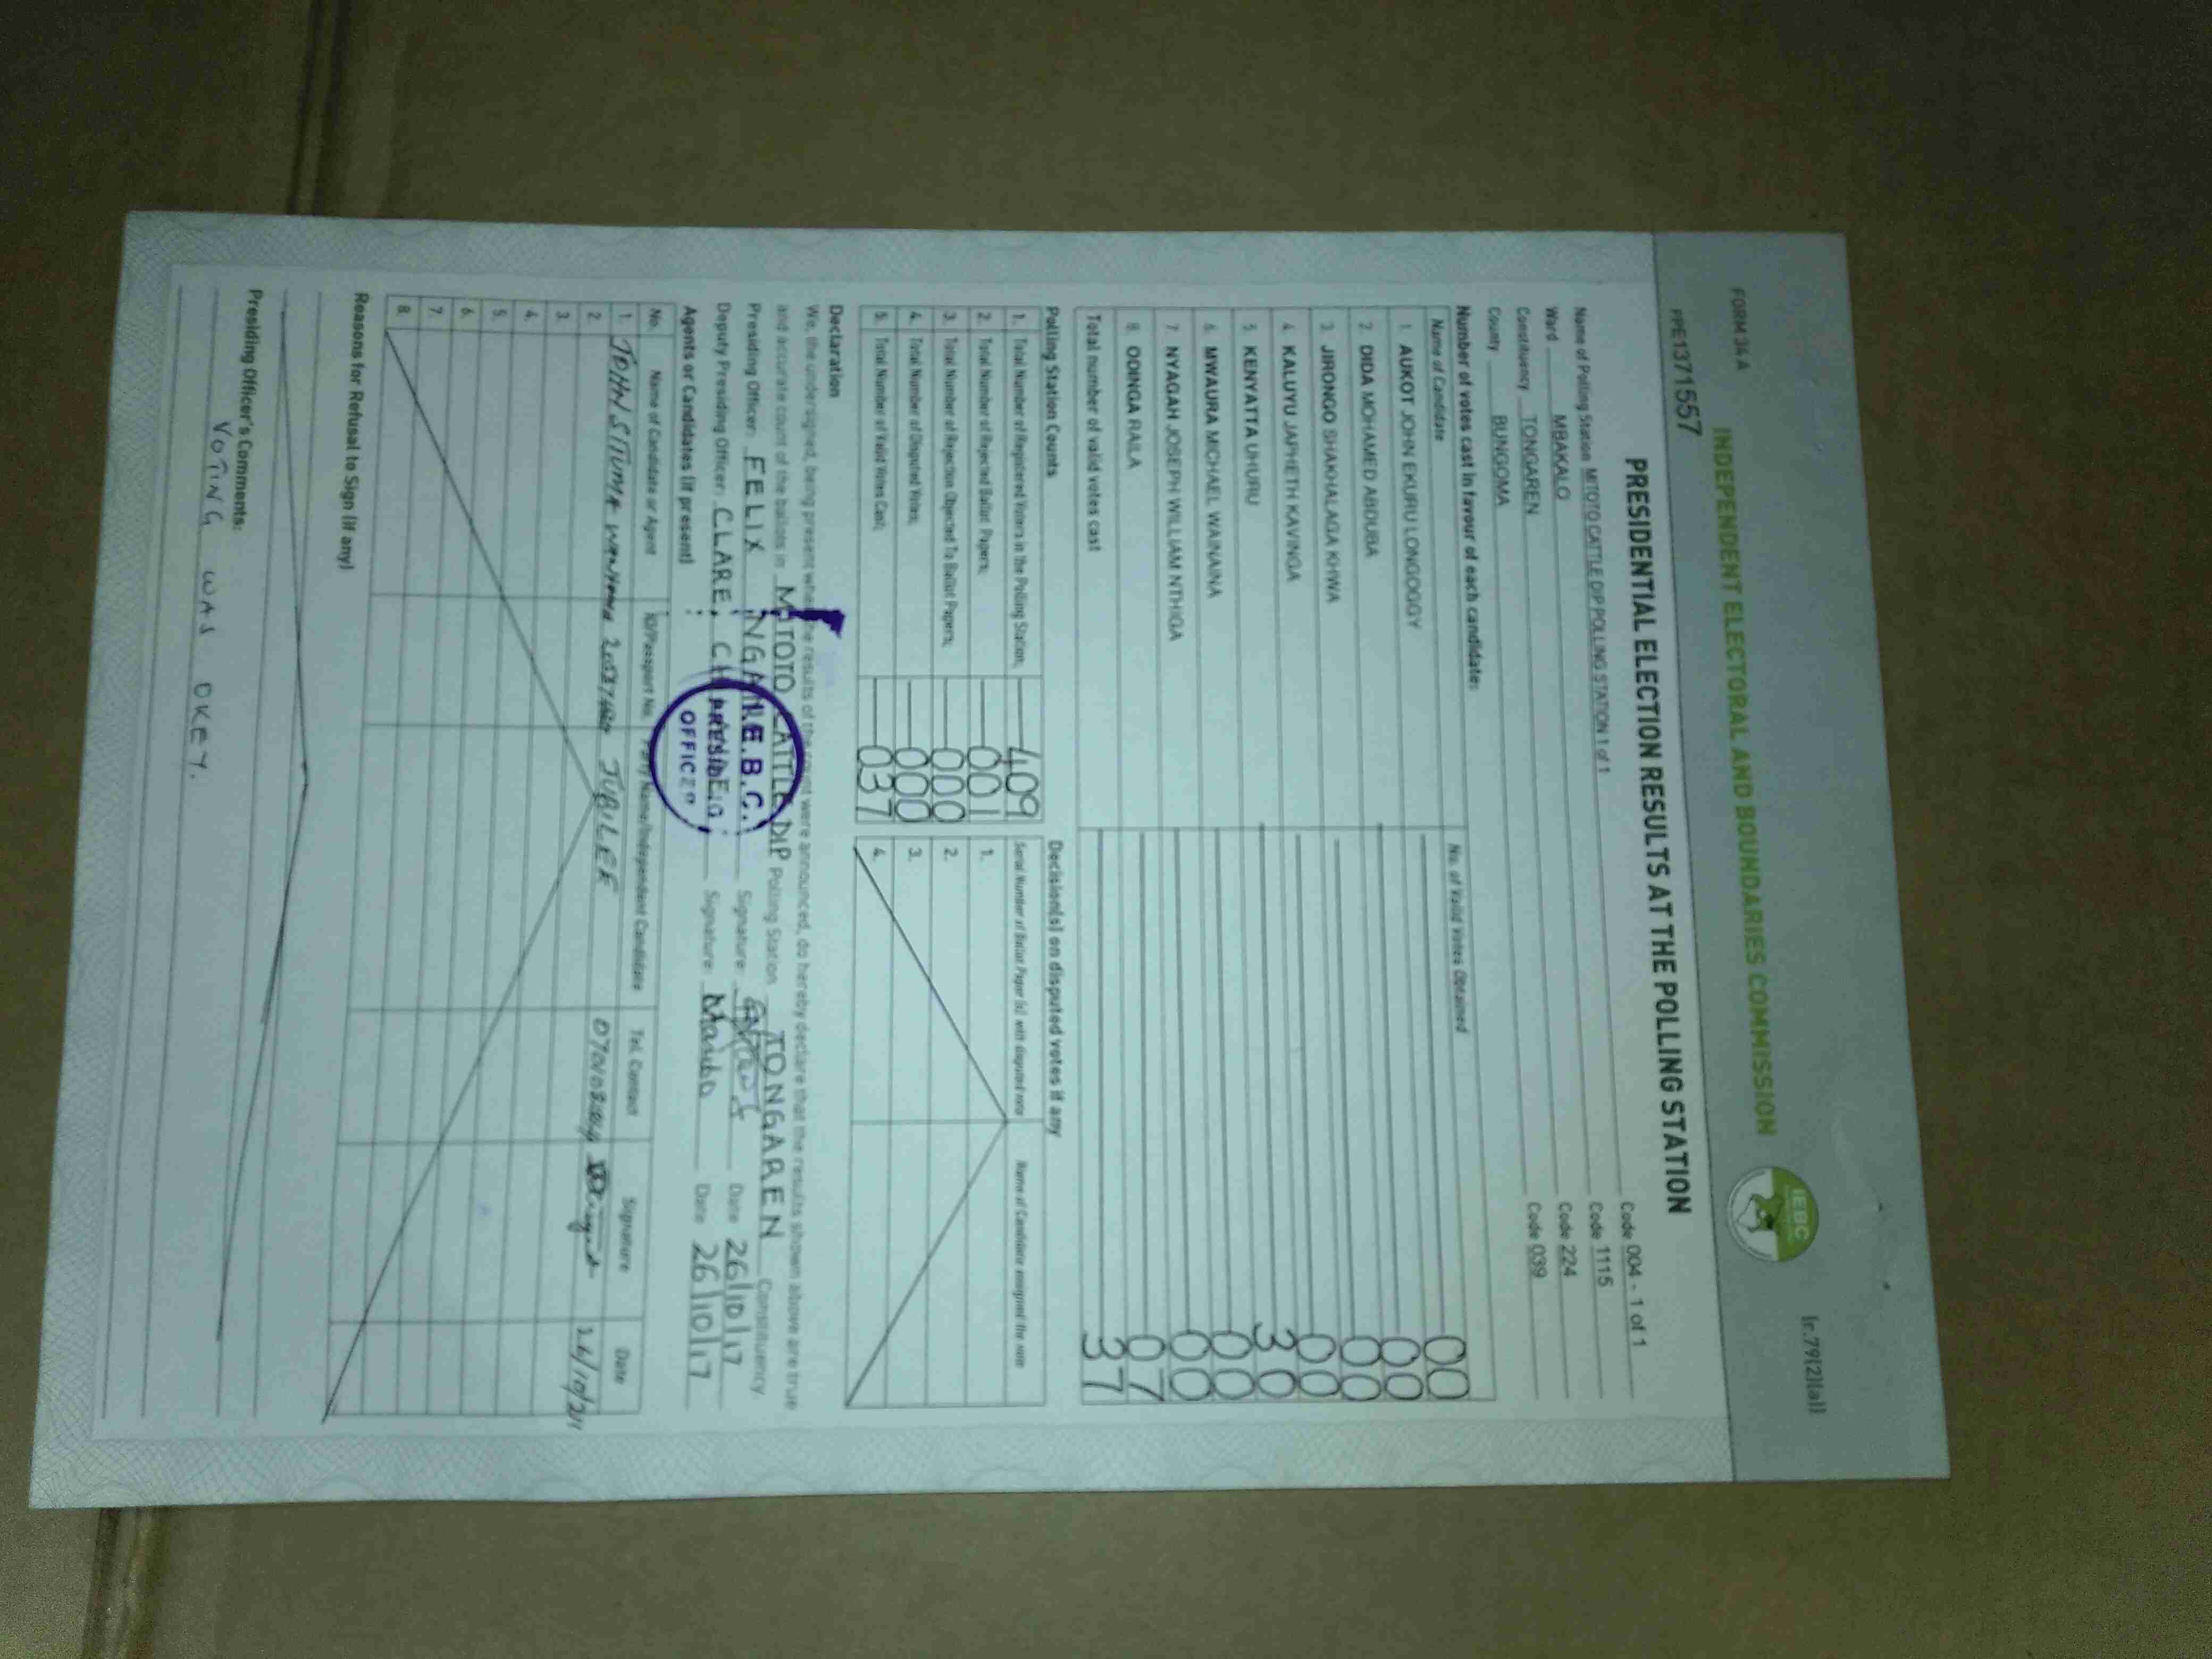 FORM 34 A
(r.79(2)(a))
INDEPENDENT ELECTORAL AND BOUNDARIES COMMISSION
IEBC
PPE1371557
PRESIDENTIAL ELECTION RESULTS AT THE POLLING STATION
Name of Polling Station MITOTO CATTLE DIP POLLING STATION 1 of 1 Code 004 - 1 of 1
Ward MBAKALO Code 1115
Constituency TONGAREN Code 224
County BUNGOMA Code 039
Number of votes cast in favour of each candidate:
Name of Candidate No. of Valid Votes Obtained
1. AUKOT JOHN EKURU LONGOGGY 00
2. DIDA MOHAMED ABDUBA 00
3. JIRONGO SHAKHALAGA KHWA 00
4. KALUYU JAPHETH KAVINGA 00
5. KENYATTA UHURU 30
6. MWAURA MICHAEL WAINAINA 00
7. NYAGAH JOSEPH WILLIAM NTHIGA 00
8. ODINGA RAILA 07
Total number of valid votes cast 37
Polling Station Counts
1. Total Number of Registered Voters in the Polling Station; 409
2. Total Number of Rejected Ballot Papers; 001
3. Total Number of Rejection Objected To Ballot Papers; 000
4. Total Number of Disputed Votes; 000
5. Total Number of Valid Votes Cast; 037
Decision(s) on disputed votes if any
Serial Number of Ballot Paper (s) with disputed vote Name of Candidate assigned the vote
1.
2.
3.
4.
Declaration
We, the undersigned, being present when the results of the count were announced, do hereby declare that the results shown above are true
and accurate count of the ballots in MITOTO CATTLE DIP Polling Station TONGAREN Constituency.
Presiding Officer: FELIX Signature Date 26/10/17
Deputy Presiding Officer: CLARE Signature Date 26/10/17
I.E.B.C.
PRESIDING
OFFICER
Agents or Candidates (if present)
No. Name of Candidate or Agent ID/Passport No. Party Name/Independent Candidate Tel. Contact Signature Date
1. JOHN JUBILEE
2.
3.
4.
5.
6.
7.
8.
Reasons for Refusal to Sign (if any)
Presiding Officer's Comments:
VOTING WAS OKEY.